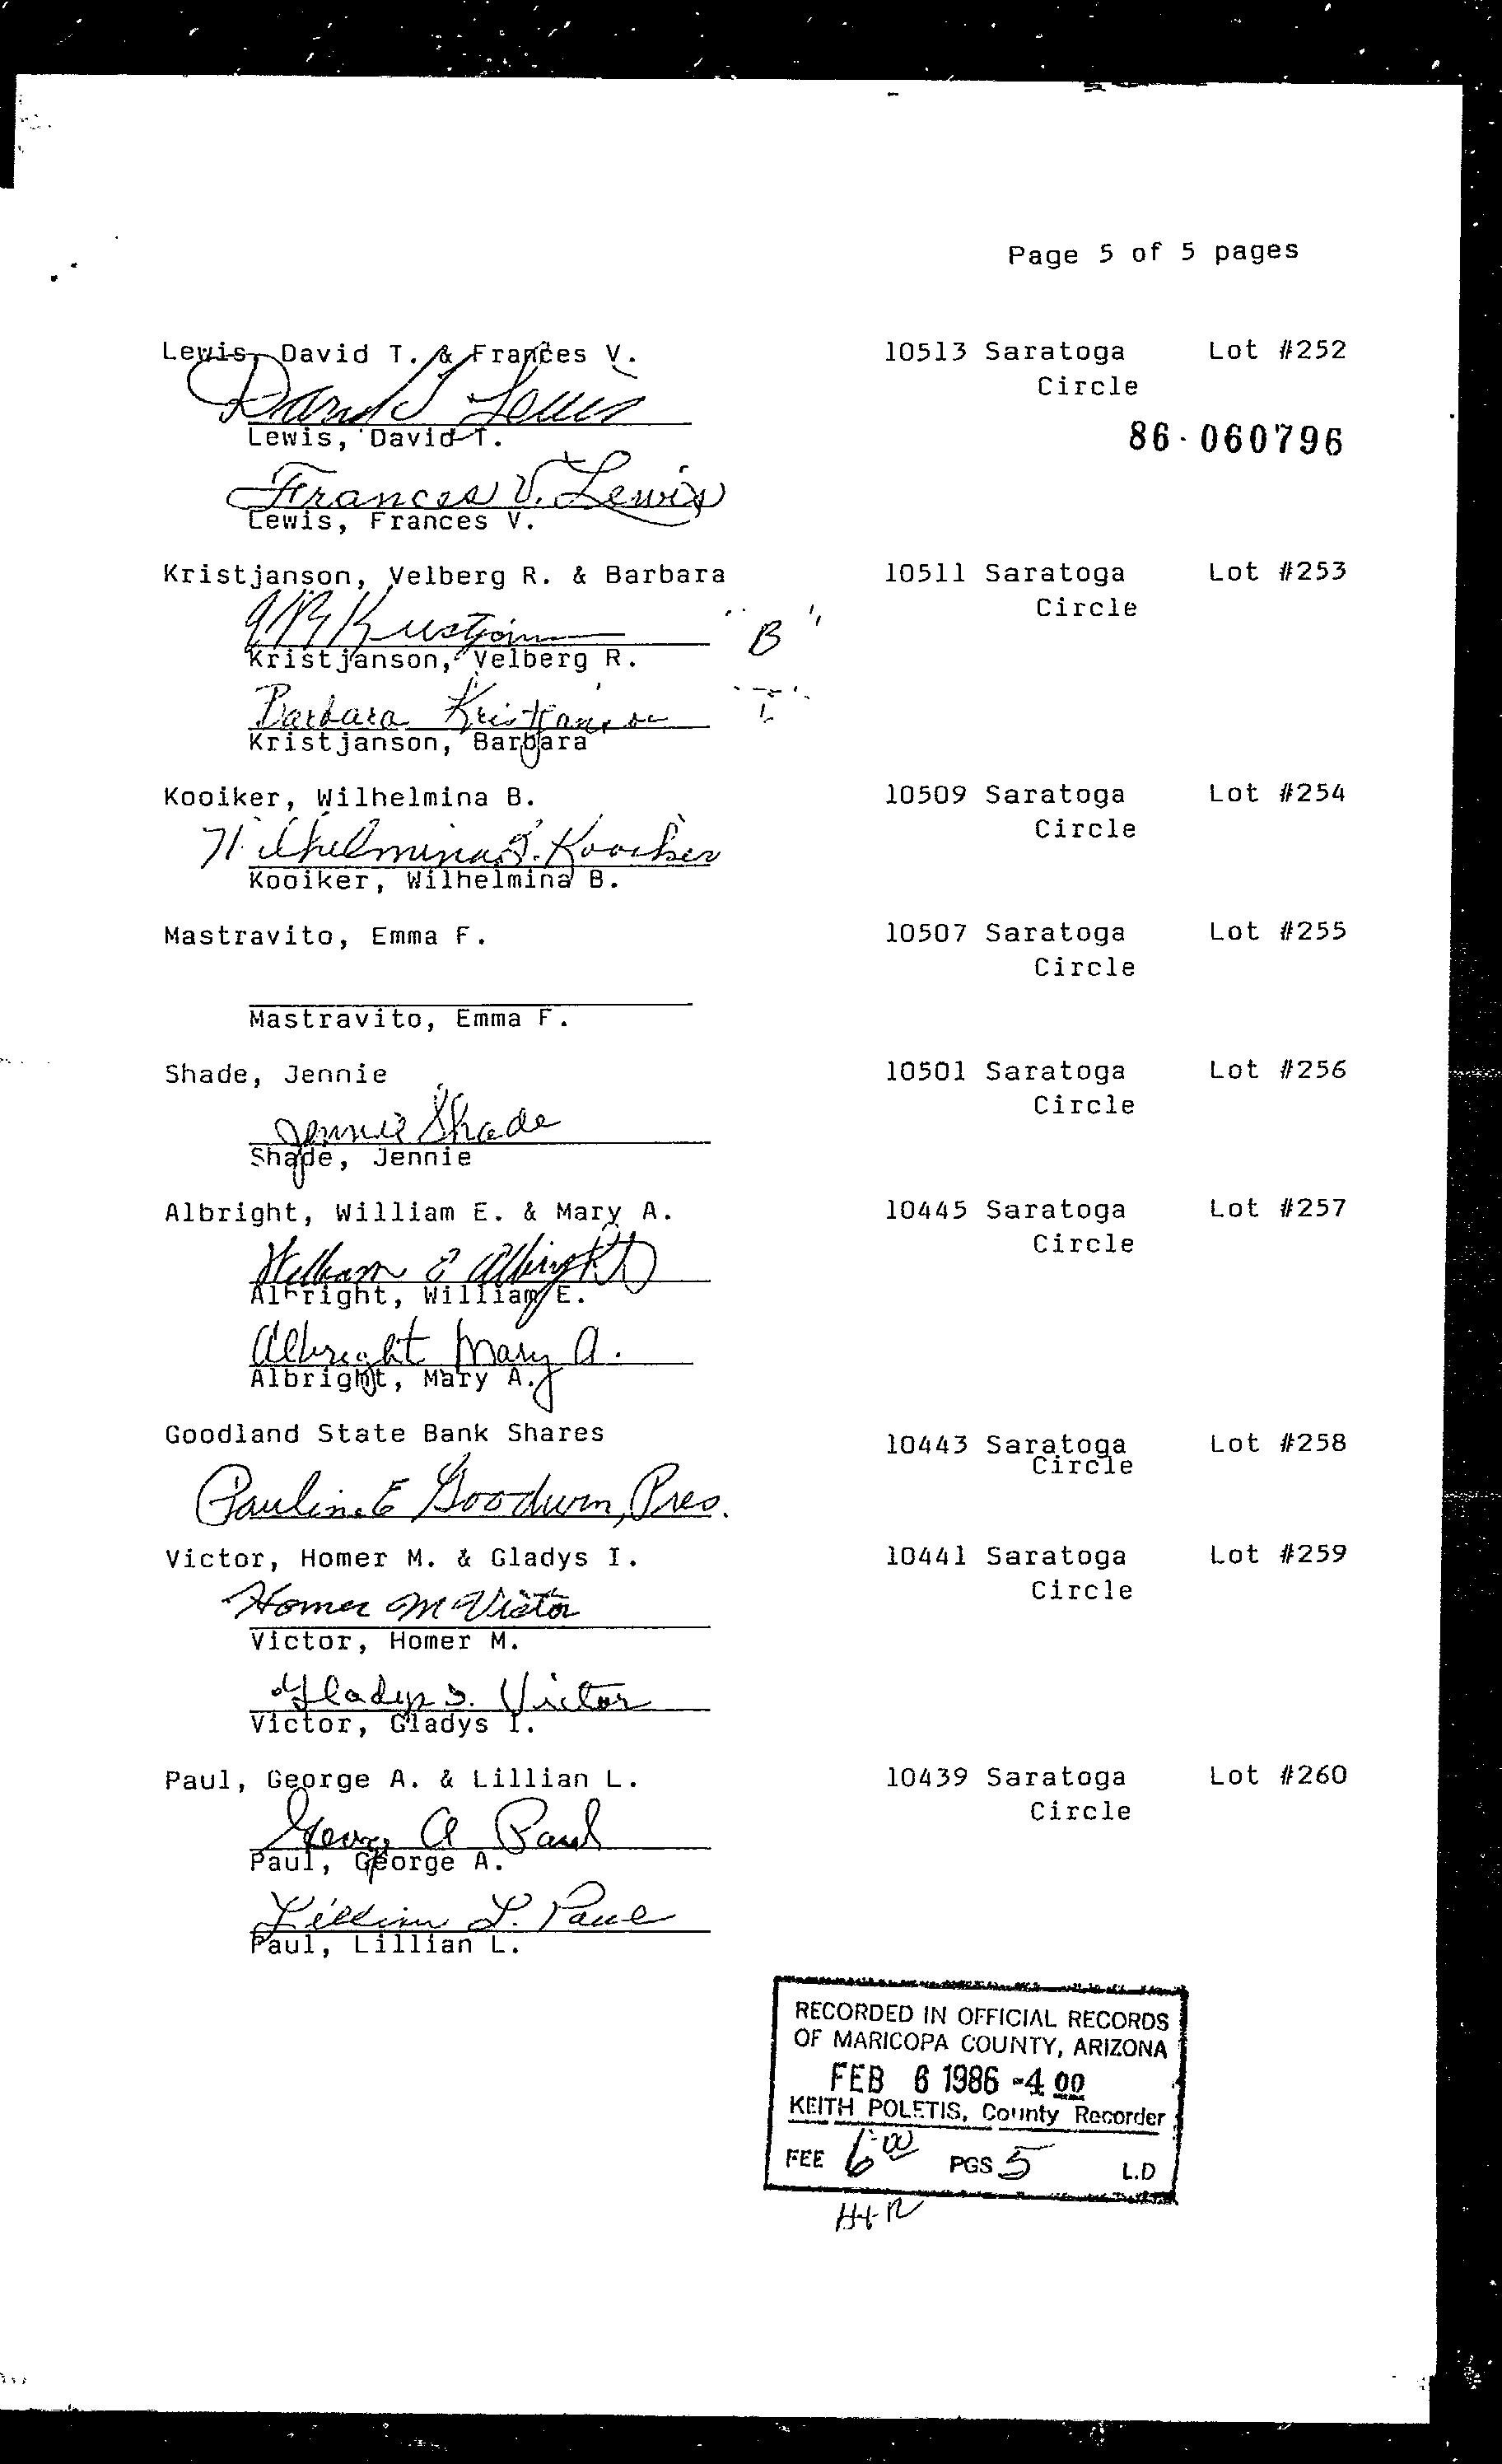 Page 5 of 5 pages
Lewis, David T. & Frances V. 10513 Saratoga Lot #252
Circle
David T Lewis
Lewis, David T.
86-060796
Frances V. Lewis
Lewis, Frances V.
Kristjanson, Velberg R. & Barbara 10511 Saratoga Lot #253
Circle
"B"
Kristjanson, Velberg R.
Barbara Kristjanson
Kristjanson, Barbara
Kooiker, Wilhelmina B. 10509 Saratoga Lot #254
Circle
Wilhelmina B. Kooiker
Kooiker, Wilhelmina B.
Mastravito, Emma F. 10507 Saratoga Lot #255
Circle
Mastravito, Emma F.
Shade, Jennie 10501 Saratoga Lot #256
Circle
Jennie Shade
Shade, Jennie
Albright, William E. & Mary A. 10445 Saratoga Lot #257
Circle
William E Albright
Albright, William E.
Albright Mary A.
Albright, Mary A.
Goodland State Bank Shares 10443 Saratoga Lot #258
Circle
Pauline E Goodwin, Pres.
Victor, Homer M. & Gladys I. 10441 Saratoga Lot #259
Circle
Homer M Victor
Victor, Homer M.
Gladys I. Victor
Victor, Gladys I.
Paul, George A. & Lillian L. 10439 Saratoga Lot #260
Circle
George A Paul
Paul, George A.
Lillian L. Paul
Paul, Lillian L.
RECORDED IN OFFICIAL RECORDS
OF MARICOPA COUNTY, ARIZONA
FEB 6 1986 -4 00
KEITH POLETIS, County Recorder
FEE 6 00 PGS 5 L.D